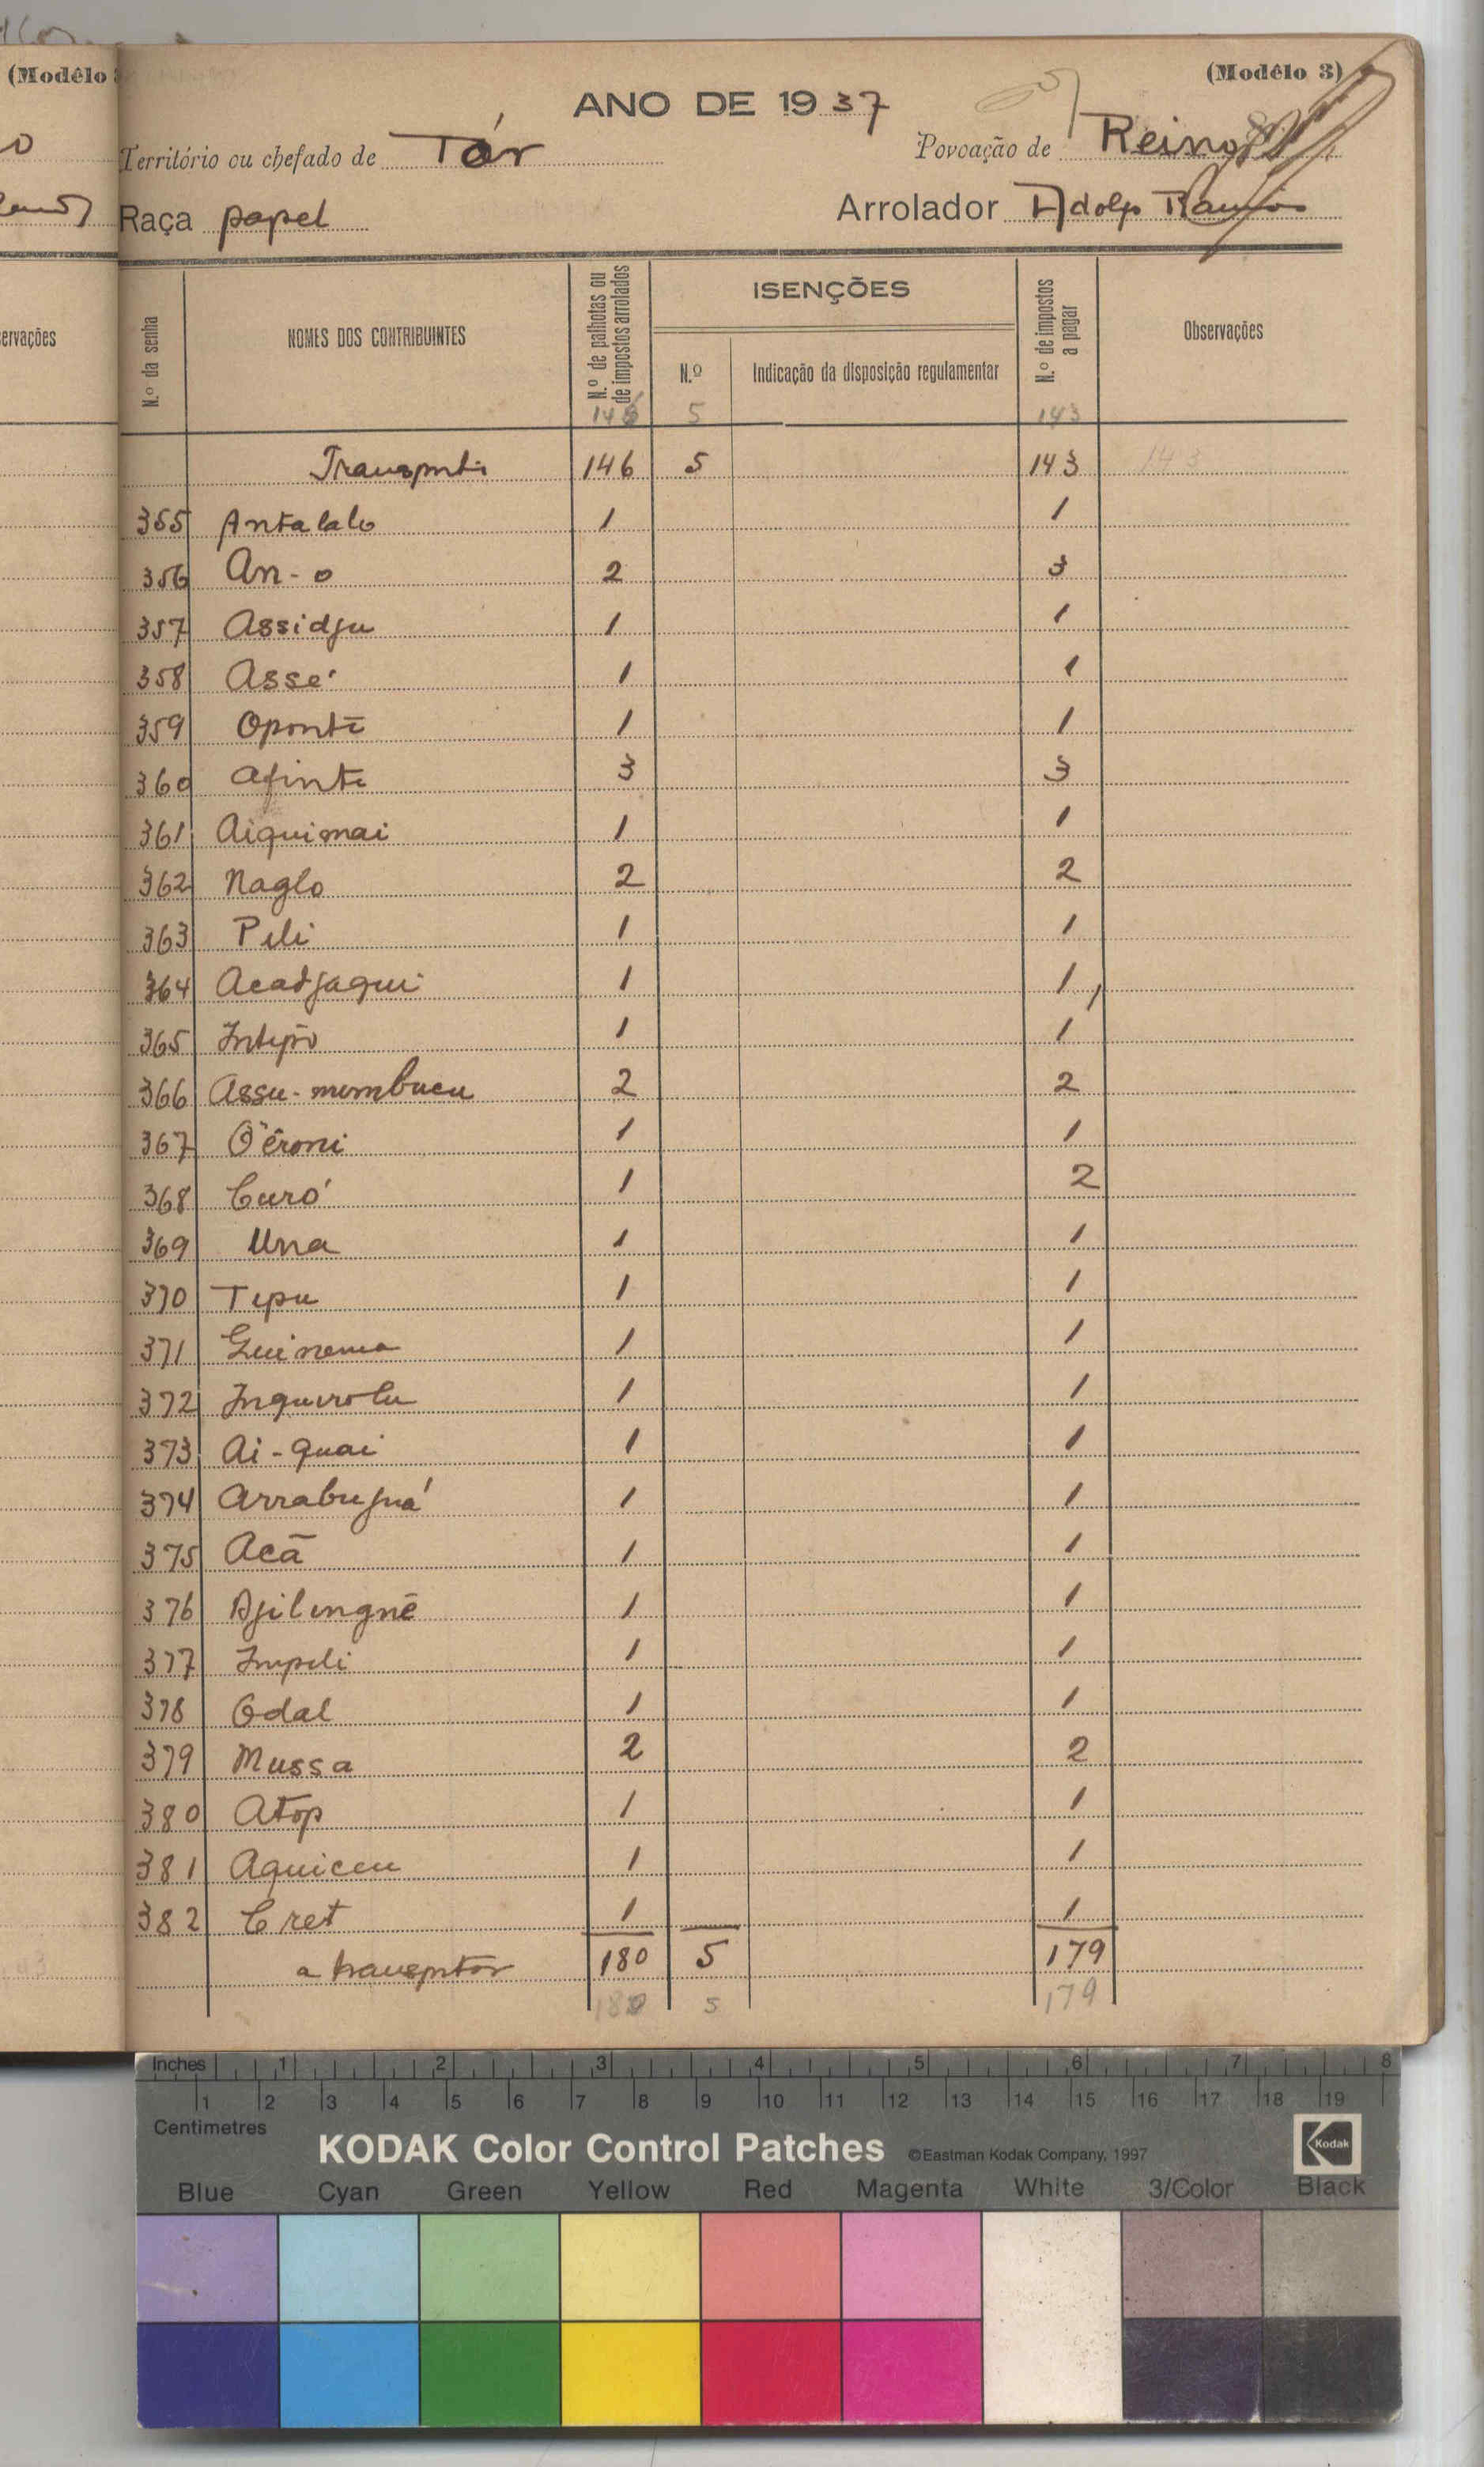 (Modêlo 3)
ANO DE 1937
Território ou chefado de Tór Povoação de Reino
Raça papel Arrolador Adolfo Ramos
N.º da senha NOMES DOS CONTRIBUINTES N.º de palhotas ou de impostos arrolados ISENÇÕES N.º Indicação da disposição regulamentar N.º de impostos a pagar Observações
146 5 143
Transporte 146 5 143 143
355 Antalalo 1 1
356 An-o 2 3
357 Assidju 1 1
358 Assé 1 1
359 Oponte 1 1
360 Afinte 3 3
361 Aiquimai 1 1
362 Naglo 2 2
363 Pili 1 1
364 Acadjaqui 1 1
365 1 1
366 Assu-mumbucu 2 2
367 Oêroni 1 1
368 Curó 1 2
369 Una 1 1
370 Tepu 1 1
371 Guinema 1 1
372 Inquirolu 1 1
373 Ai-quai 1 1
374 Arrabujuá 1 1
375 Acã 1 1
376 Djilingnê 1 1
377 Impili 1 1
378 Odal 1 1
379 Mussa 2 2
380 Atop 1 1
381 Aquiceu 1 1
382 Cret 1 1
a transportar 180 5 179
180 5 179
(Modêlo
ervações
Inches 1 2 3 4 5 6 7 8
1 2 3 4 5 6 7 8 9 10 11 12 13 14 15 16 17 18 19
Centimetres
KODAK Color Control Patches ©Eastman Kodak Company, 1997 Kodak
Blue Cyan Green Yellow Red Magenta White 3/Color Black